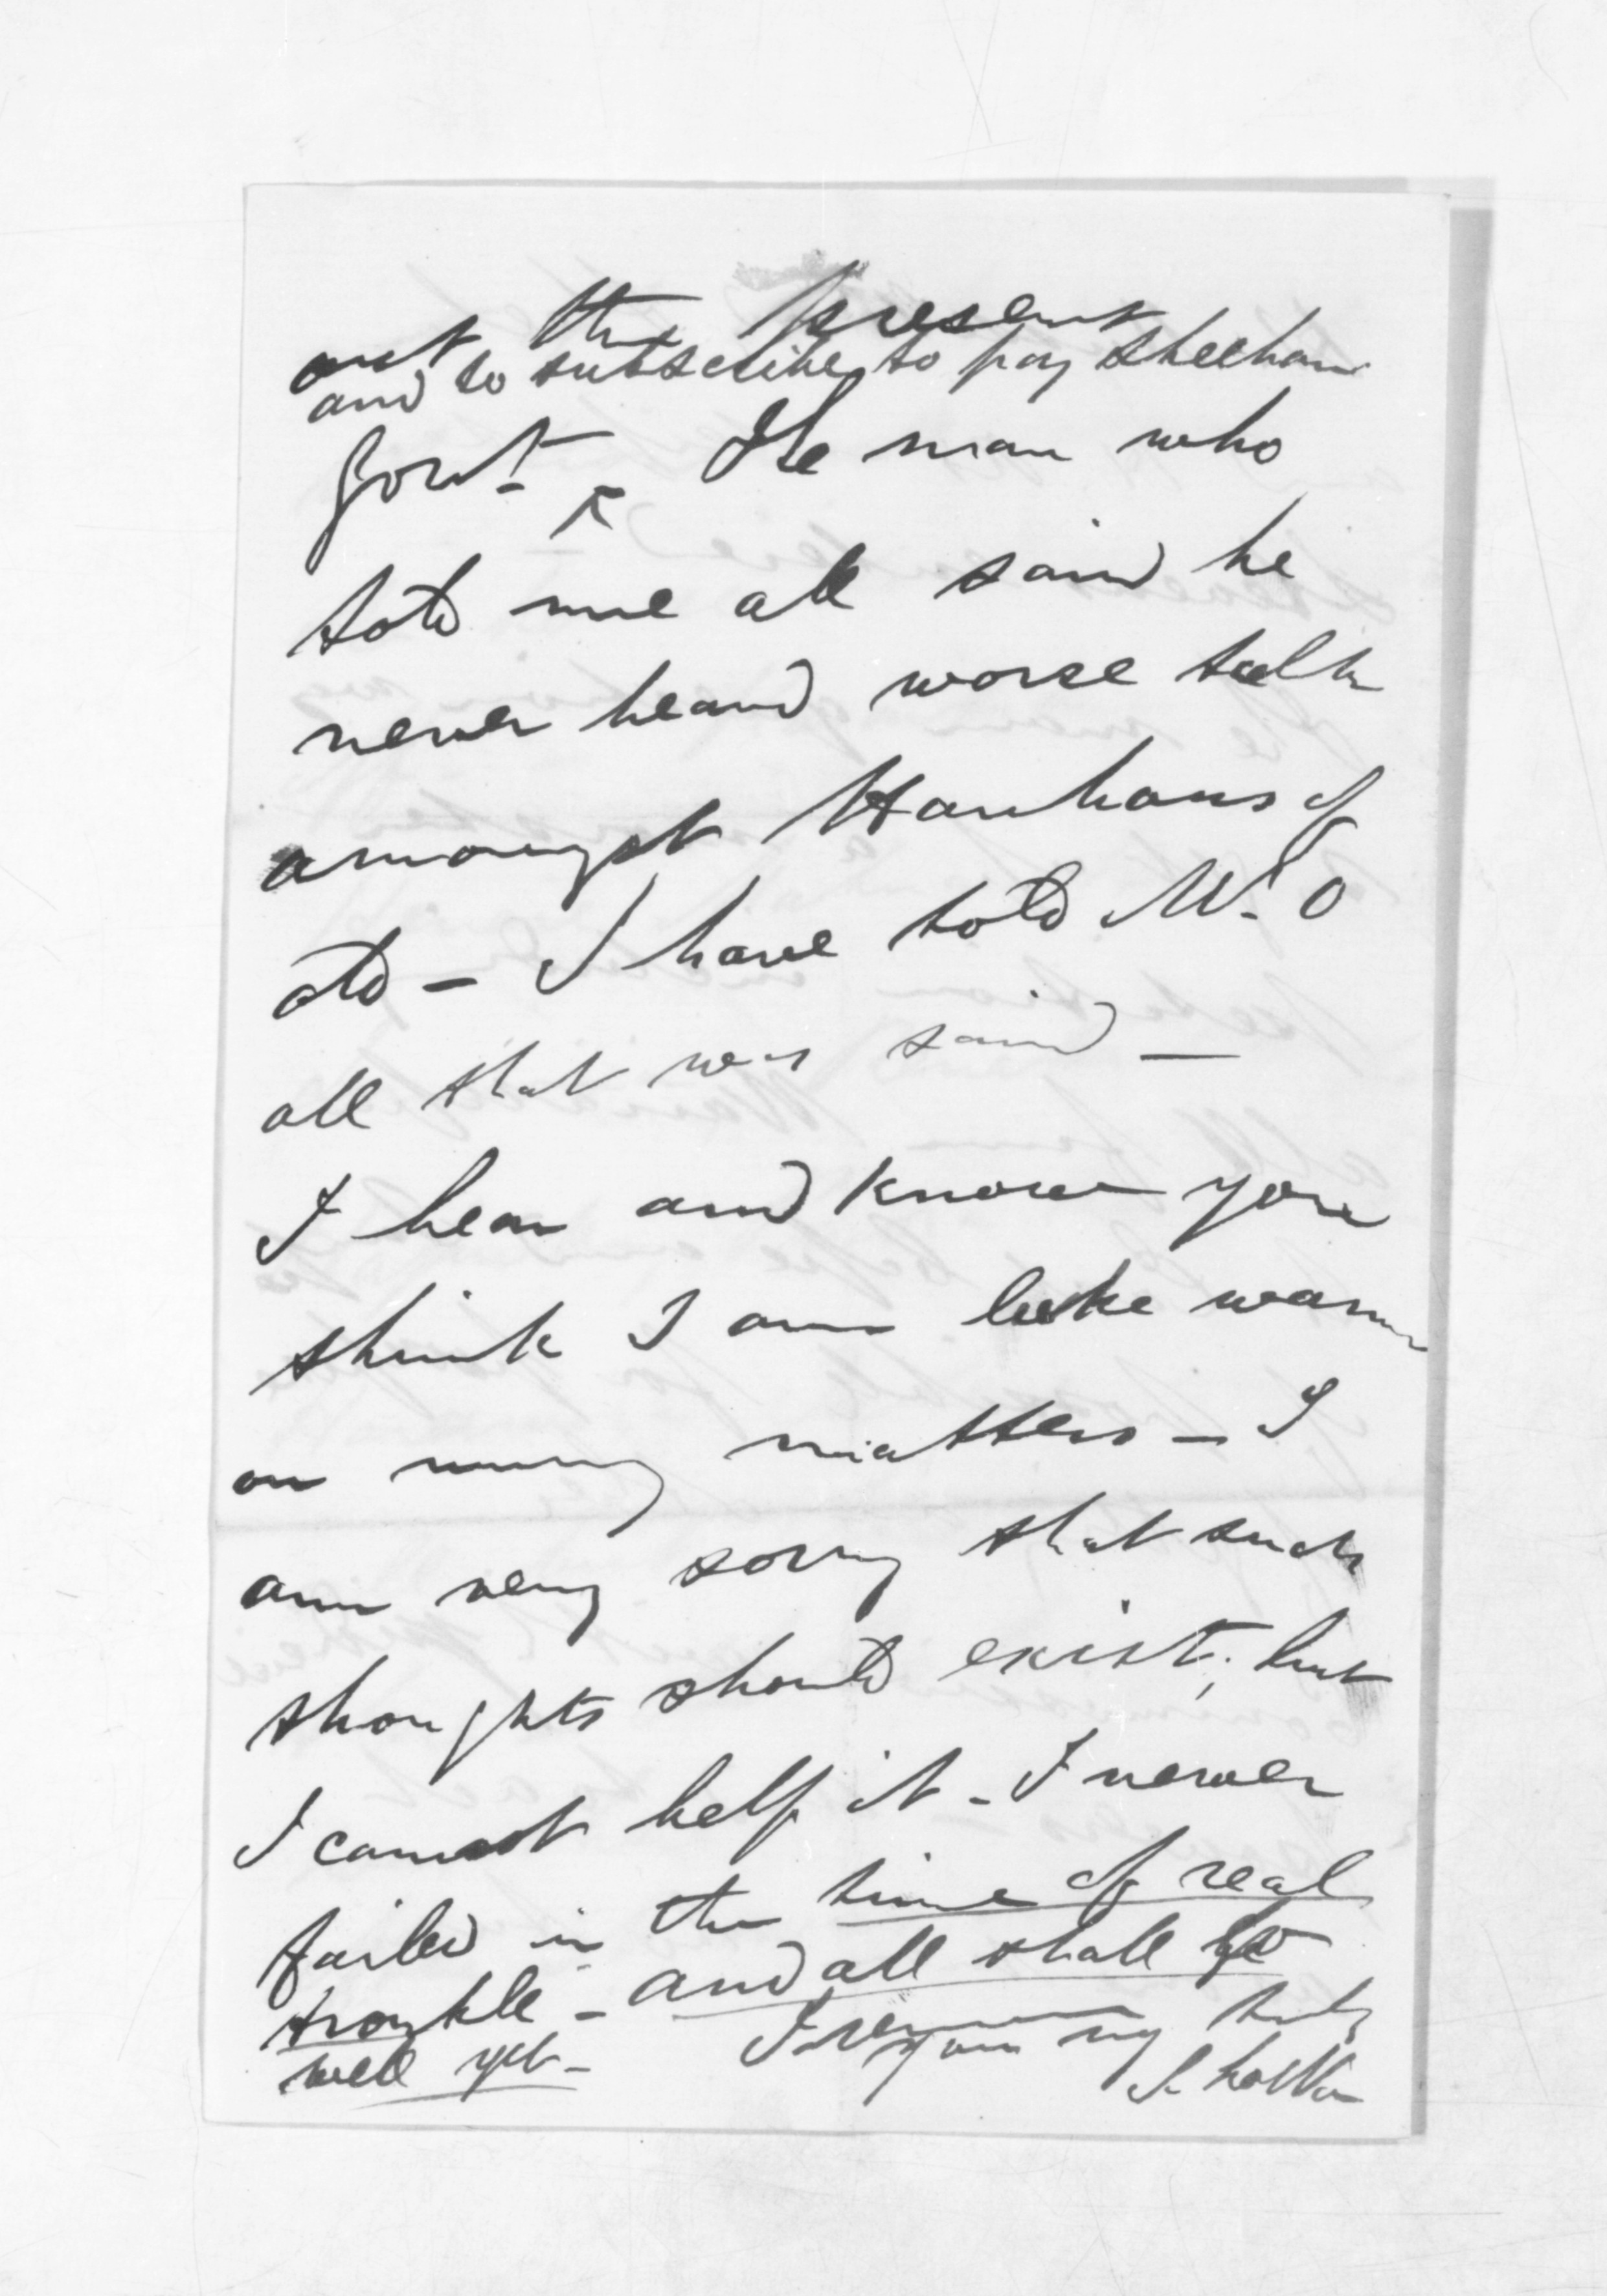 out the present
and to subscribe to pay Sheehan
Govt. The man who
told me all said he
never heard worse talk
amongst Hauhaus of
old - I have told Mr. O
all that was said -
I hear and know you
think I am luke warm
on many matters - I
am very sorry that such
thoughts should exist, but
I cannot help it - I never
failed in the time of real
trouble - and all shall be
well yet -
I remain
yours very truly